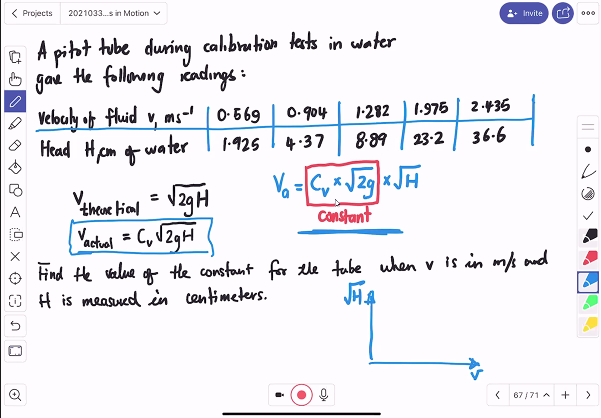 Projects
2021033...s in Motion
Invite
A pitot tube during calibration tests in water
gave the following readings:
Velocity of fluid v, ms⁻¹ 0.569 0.904 1.282 1.975 2.435
Head H, cm of water 1.925 4.37 8.89 23.2 36.6
Vtheoretical = √2gH
Va = Cv × √2g × √H
Constant
Vactual = Cv √2gH
Find the value of the constant for the tube when v is in m/s and
H is measured in centimeters.
√H
v
67 / 71